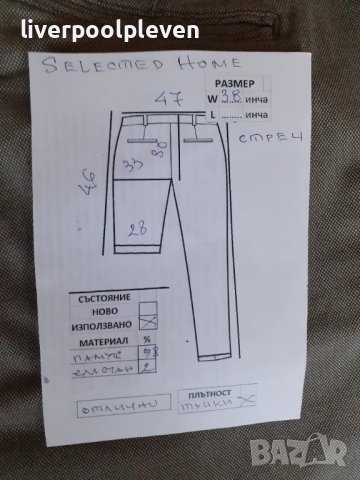 liverpoolpleven
SELECTED HOME
РАЗМЕР
W 38 инча
L ........ инча
47
СТРЕЧ
30
33
46
28
СЪСТОЯНИЕ
НОВО
ИЗПОЛЗВАНО X
МАТЕРИАЛ %
ПАМУК 98
ЕЛАСТАН 2
ОТЛИЧНИ
ПЛЪТНОСТ
ТЪНКИ X
BAZAR